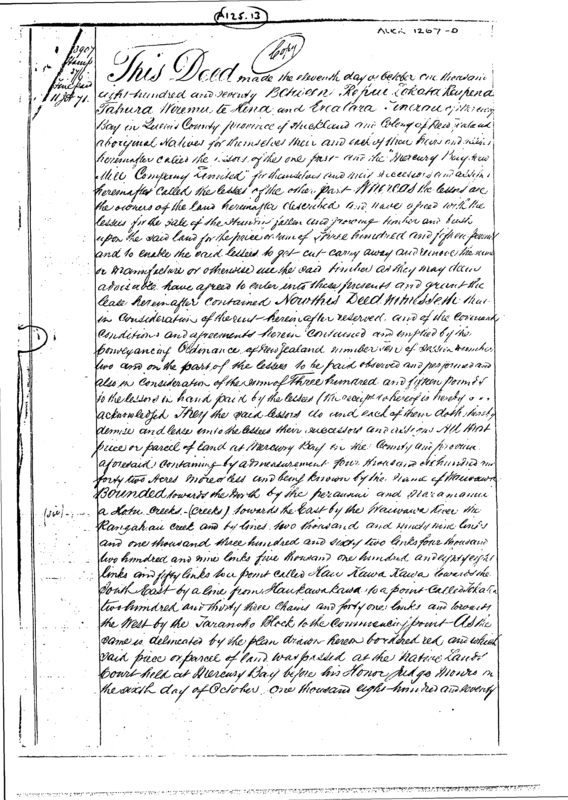 A125.13
Copy
This Deed made the eleventh day of October one thousand
eight hundred and seventy Between
and
Bay in Queens County province of Auckland and Colony of New Zealand
aboriginal Natives for themselves their and each of their heirs and assigns
hereinafter called the lessors of the one part and the "Mercury Bay Saw
Mill Company Limited" for themselves and their successors and assigns
hereinafter called the lessees of the other part Whereas the lessors are
the owners of the land hereinafter described and have agreed with the
lessees for the sale of the standing fallen and growing timber and bush
upon the said land for the price or sum of Three hundred and fifteen pounds
and to enable the said lessees to get cut carry away and remove the same
or manufacture or otherwise use the said timber as they may deem
advisable have agreed to enter into these presents and grant the
lease hereinafter contained Now this Deed witnesseth that
in consideration of the rent hereinafter reserved and of the covenants
conditions and agreements herein contained and implied by the
Conveyancing Ordinance of New Zealand number ten of session number
two and on the part of the lessees to be paid observed and performed and
also in Consideration of the sum of Three hundred and fifteen pounds
to the lessors in hand paid by the lessees (the receipt whereof is hereby
acknowledged They the said lessors do and each of them doth hereby
demise and lease unto the lessees their successors and assigns All that
piece or parcel of land at Mercury Bay in the County and province
aforesaid containing by admeasurement four thousand six hundred and
forty two Acres more or less and being known by the name of
(sic)
Bounded towards the North by the and
Creeks (Creeks) towards the East by the River the
Rangahau creek and by lines two thousand and ninety nine links
and one thousand three hundred and sixty two links four thousand
two hundred and nine links five thousand one hundred and eighty eight
links and fifty links to a point called Hau Kawa Kawa towards the
South East by a line from Haukawakawa to a point called
two hundred and thirty three chains and forty one links and towards
the West by the Block to the commencing point As the
same is delineated by the plan drawn hereon bordered red and which
said piece or parcel of land was passed at the Native Lands
Court held at Mercury Bay before his Honor Judge on
the sixth day of October one thousand eight hundred and seventy